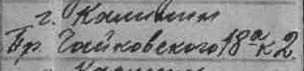 г. Калинин
Пр. Чайковского 18а к 2